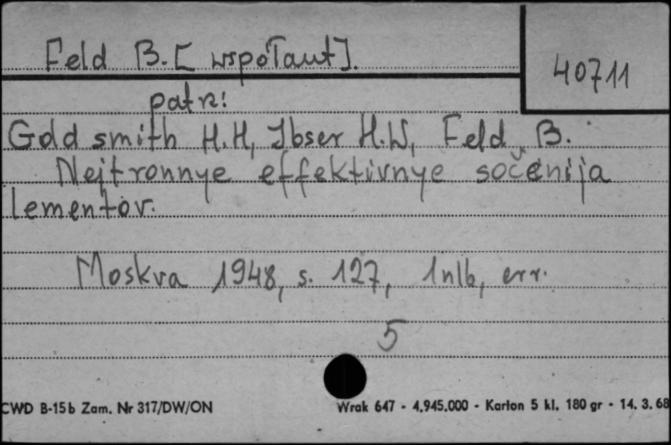 Feld B. [współaut].
40711
patrz:
Goldsmith H.H, Ibser H.W, Feld B.
Nejtronnye effektivnye sočenija
lementov.
Moskva 1948, s. 127, 1nlb, err.
5
CWD B-15b Zam. Nr 317/DW/ON
Wrak 647 - 4.945.000 - Karton 5 kl. 180 gr - 14. 3. 68